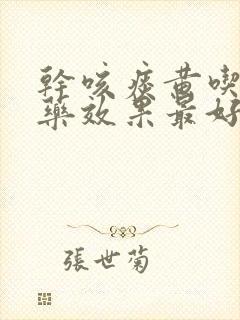 幹咳痰黃喫
藥效果最好
張世菊